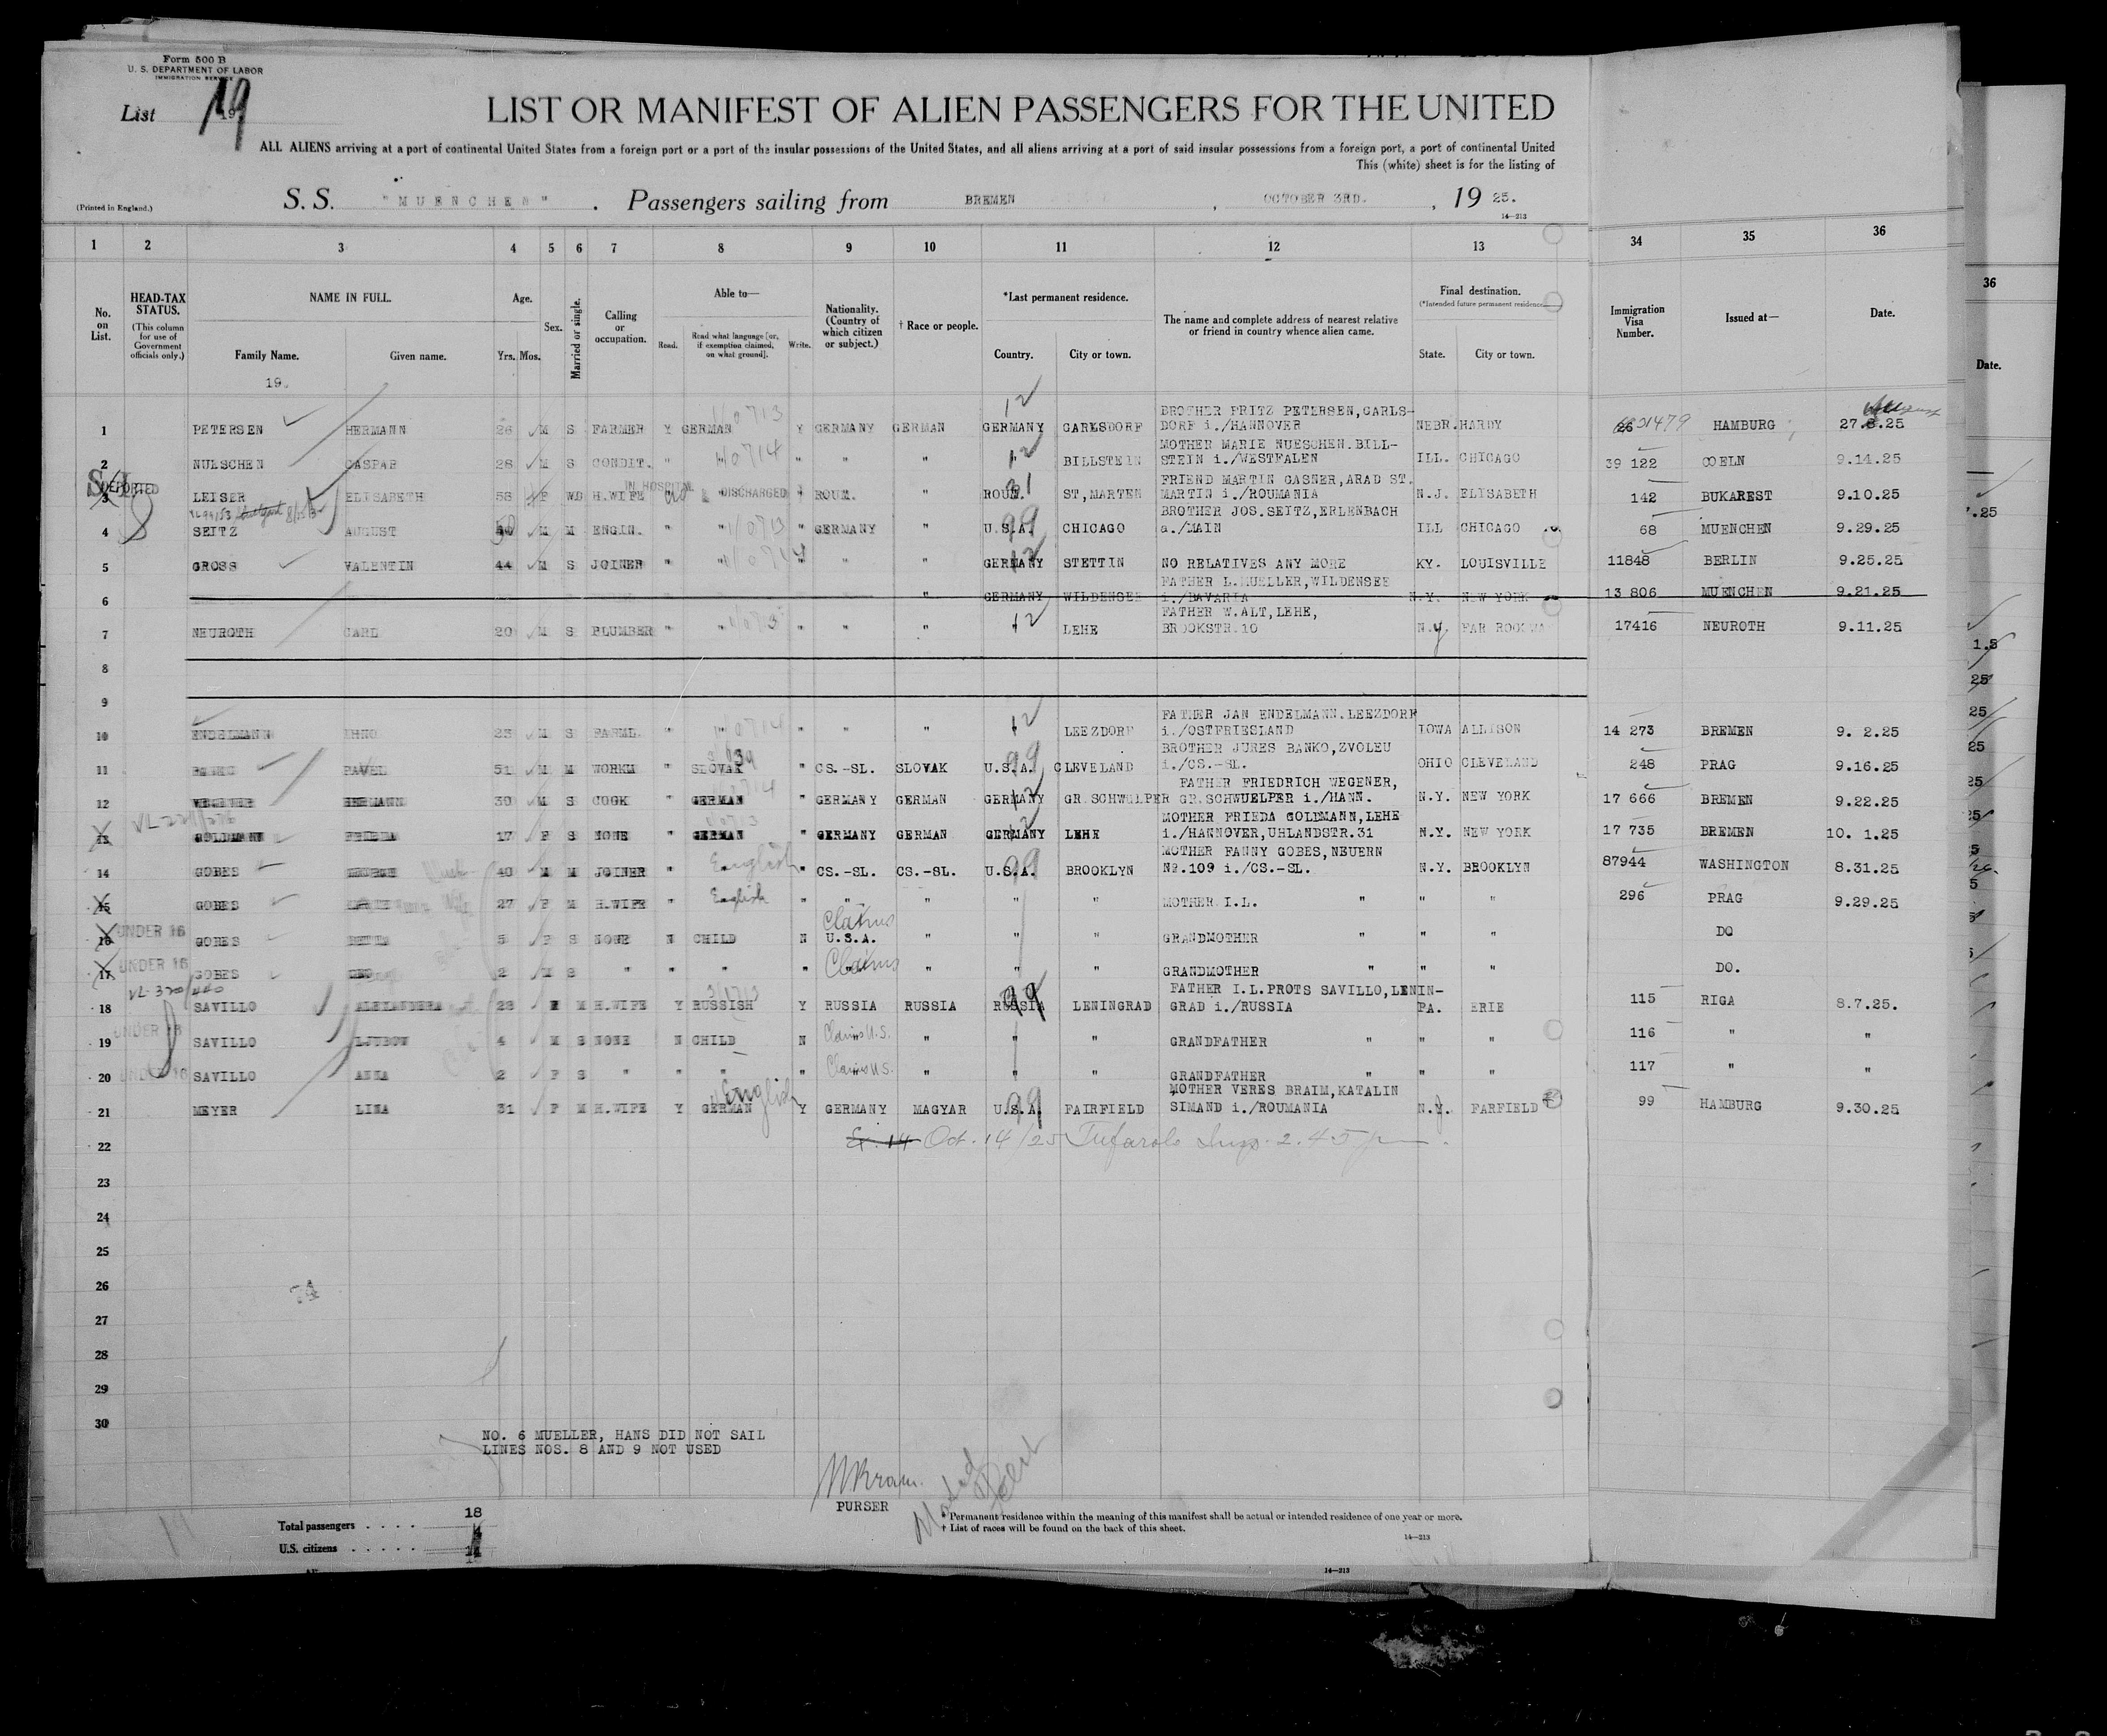 Form 500 B
U. S. DEPARTMENT OF LABOR
IMMIGRATION SERVICE
List 19
LIST OR MANIFEST OF ALIEN PASSENGERS FOR THE UNITED
ALL ALIENS arriving at a port of continental United States from a foreign port or a port of the insular possessions of the United States, and all aliens arriving at a port of said insular possessions from a foreign port, a port of continental United
This (white) sheet is for the listing of
(Printed in England.)
S. S. "MUENCHEN". Passengers sailing from BREMEN, OCTOBER 3RD., 19 25.
14—213
1 2 3 4 5 6 7 8 9 10 11 12 13 34 35 36
No. on List.
HEAD-TAX STATUS.
(This column for use of Government officials only.)
NAME IN FULL.
Family Name. Given name.
Age.
Yrs. Mos.
Sex.
Married or single.
Calling or occupation.
Able to—
Read. Read what language [or, if exemption claimed, on what ground]. Write.
Nationality. (Country of which citizen or subject.)
† Race or people.
*Last permanent residence.
Country. City or town.
The name and complete address of nearest relative or friend in country whence alien came.
Final destination.
(*Intended future permanent residence.)
State. City or town.
Immigration Visa Number.
Issued at—
Date.
36
Date.
19.
1 PETERSEN HERMANN 26 M S FARMER Y GERMAN Y GERMANY GERMAN GERMANY CARLSDORF BROTHER FRITZ PETERSEN,CARLS-DORF i./HANNOVER NEBR. HARDY HAMBURG 27.8.25
2 NUESCHEN CASPAR 28 M S CONDIT. " " " " " " BILLSTEIN MOTHER MARIE NUESCHEN.BILL-STEIN i./WESTFALEN ILL. CHICAGO 39 122 COELN 9.14.25
DEPORTED
IN HOSPITAL DISCHARGED
3 LEISER ELISABETH 58 F WD H.WIFE ROUM. " ROUM. ST,MARTEN FRIEND MARTIN GASNER,ARAD ST. MARTIN i./ROUMANIA N.J. ELISABETH 142 BUKAREST 9.10.25
4 SEITZ AUGUST 50 M M ENGIN. " " GERMANY " U.S.A. CHICAGO BROTHER JOS.SEITZ,ERLENBACH a./MAIN ILL CHICAGO 68 MUENCHEN 9.29.25
5 GROSS VALENTIN 44 M S JOINER " " " " " GERMANY STETTIN NO RELATIVES ANY MORE KY. LOUISVILLE 11848 BERLIN 9.25.25
6 " GERMANY WILDENSEE FATHER L.MUELLER,WILDENSEE i./BAVARIA N.Y. NEW YORK 13 806 MUENCHEN 9.21.25
7 NEUROTH CARL 20 M S PLUMBER " " " " " LEHE FATHER W.ALT,LEHE, BROOKSTR.10 N.Y FAR ROCKWA 17416 NEUROTH 9.11.25
8
9
10 ENDELMANN IHNO 23 M S FARML. " " " " " " LEEZDORF FATHER JAN ENDELMANN.LEEZDORF i./OSTFRIESLAND IOWA ALLISON 14 273 BREMEN 9. 2.25
11 BANKO PAVEL 51 M M WORKM " SLOVAK " CS.-SL. SLOVAK U.S.A. CLEVELAND BROTHER JURES BANKO,ZVOLEU i./CS.-SL. OHIO CLEVELAND 248 PRAG 9.16.25
12 WEGENER HERMANN 30 M S COOK " GERMAN " GERMANY GERMAN GERMANY GR.SCHWUELPER FATHER FRIEDRICH WEGENER, GR.SCHWUELPER i./HANN. N.Y. NEW YORK 17 666 BREMEN 9.22.25
13 GOLDMANN FRIEDA 17 F S NONE " GERMAN " GERMANY GERMAN GERMANY LEHE MOTHER FRIEDA GOLDMANN,LEHE i./HANNOVER,UHLANDSTR.31 N.Y. NEW YORK 17 735 BREMEN 10. 1.25
14 GOBES GEORGE 40 M M JOINER " English " CS.-SL. CS.-SL. U.S.A. BROOKLYN MOTHER FANNY GOBES,NEUERN No.109 i./CS.-SL. N.Y. BROOKLYN 87944 WASHINGTON 8.31.25
15 GOBES 27 F M H.WIFE " English " " " " " MOTHER I.L. " " " 296 PRAG 9.29.25
16 UNDER 16 GOBES 5 F S NONE N CHILD N Claims U.S.A. " " " GRANDMOTHER " " " DO
17 UNDER 16 GOBES 2 M S " " " " Claims " " " " GRANDMOTHER " " " DO.
18 SAVILLO ALEXANDERA 28 F M H.WIFE Y RUSSISH Y RUSSIA RUSSIA RUSSIA LENINGRAD FATHER I.L.PROTS SAVILLO,LENIN-GRAD i./RUSSIA PA. ERIE 115 RIGA 8.7.25.
19 UNDER 16 SAVILLO LJUBOW 4 M S NONE N CHILD N Claims U.S. " " " GRANDFATHER " " " 116 " "
20 UNDER 16 SAVILLO ANNA 2 F S " " " " Claims U.S. " " " GRANDFATHER " " " 117 " "
21 MEYER LINA 31 F M H.WIFE Y GERMAN English Y GERMANY MAGYAR U.S.A. FAIRFIELD MOTHER VERES BRAIM,KATALIN SIMAND i./ROUMANIA N.Y. FARFIELD 99 HAMBURG 9.30.25
22 Oct. 14/25 Insp. 2.45 p
23
24
25
26
27
28
29
30
NO. 6 MUELLER, HANS DID NOT SAIL
LINES NOS. 8 AND 9 NOT USED
PURSER
Total passengers . . . . 18
U.S. citizens . . . . .
* Permanent residence within the meaning of this manifest shall be actual or intended residence of one year or more.
† List of races will be found on the back of this sheet.
14—213
14—213